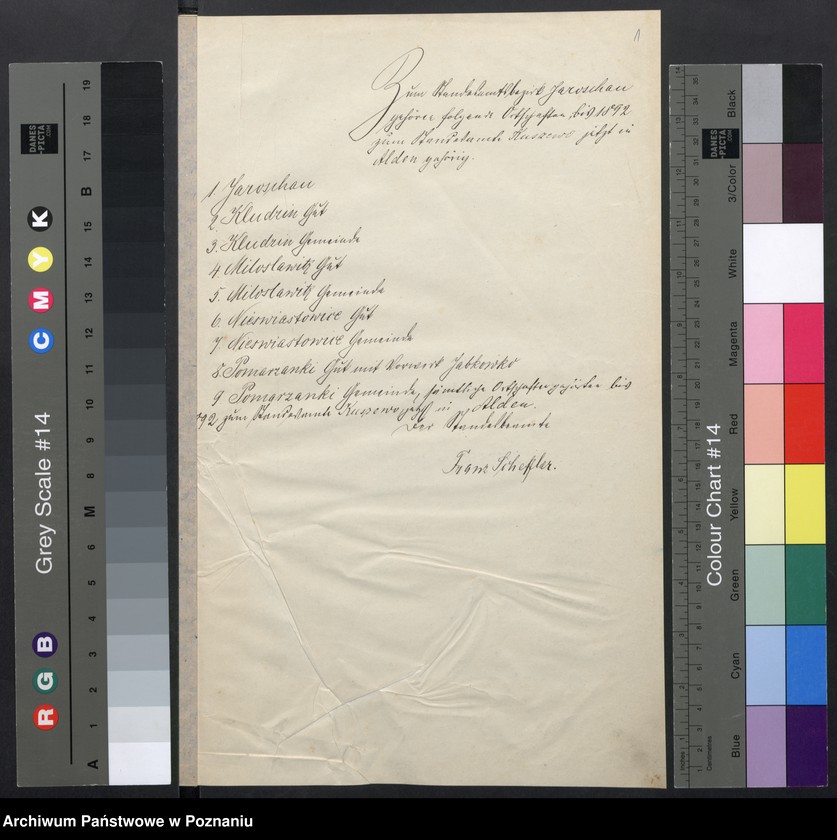 1
Zum Standesamtsbezirk Jaroschau
gehören folgende Ortschaften, bis 1892
zum Standesamte Kuszewo jetzt in
Alden gehörig.
1 Jaroschau
2. Kludzin Gut
3. Kludzin Gemeinde
4. Miloslawitz Gut
5. Miloslawitz Gemeinde
6. Nieswiastowice Gut
7. Nieswiastowice Gemeinde
8. Pomarzanki Gut mit Vorwerk Jabkowko
9 Pomarzanki Gemeinde, sämtliche Ortschaften gehörten bis
92 zum Standesamte Kuszewo jetzt in Alden.
Der Standesbeamte
Franz Scheffler.
Grey Scale #14
DANES
-PICTA
.COM
C M Y K
R G B
A 1 2 3 4 5 6 M 8 9 10 11 12 13 14 15 B 17 18 19
Colour Chart #14
DANES
-PICTA
.COM
Black
3/Color
White
Magenta
Red
Yellow
Green
Cyan
Blue
Inches
Centimetres
Archiwum Państwowe w Poznaniu